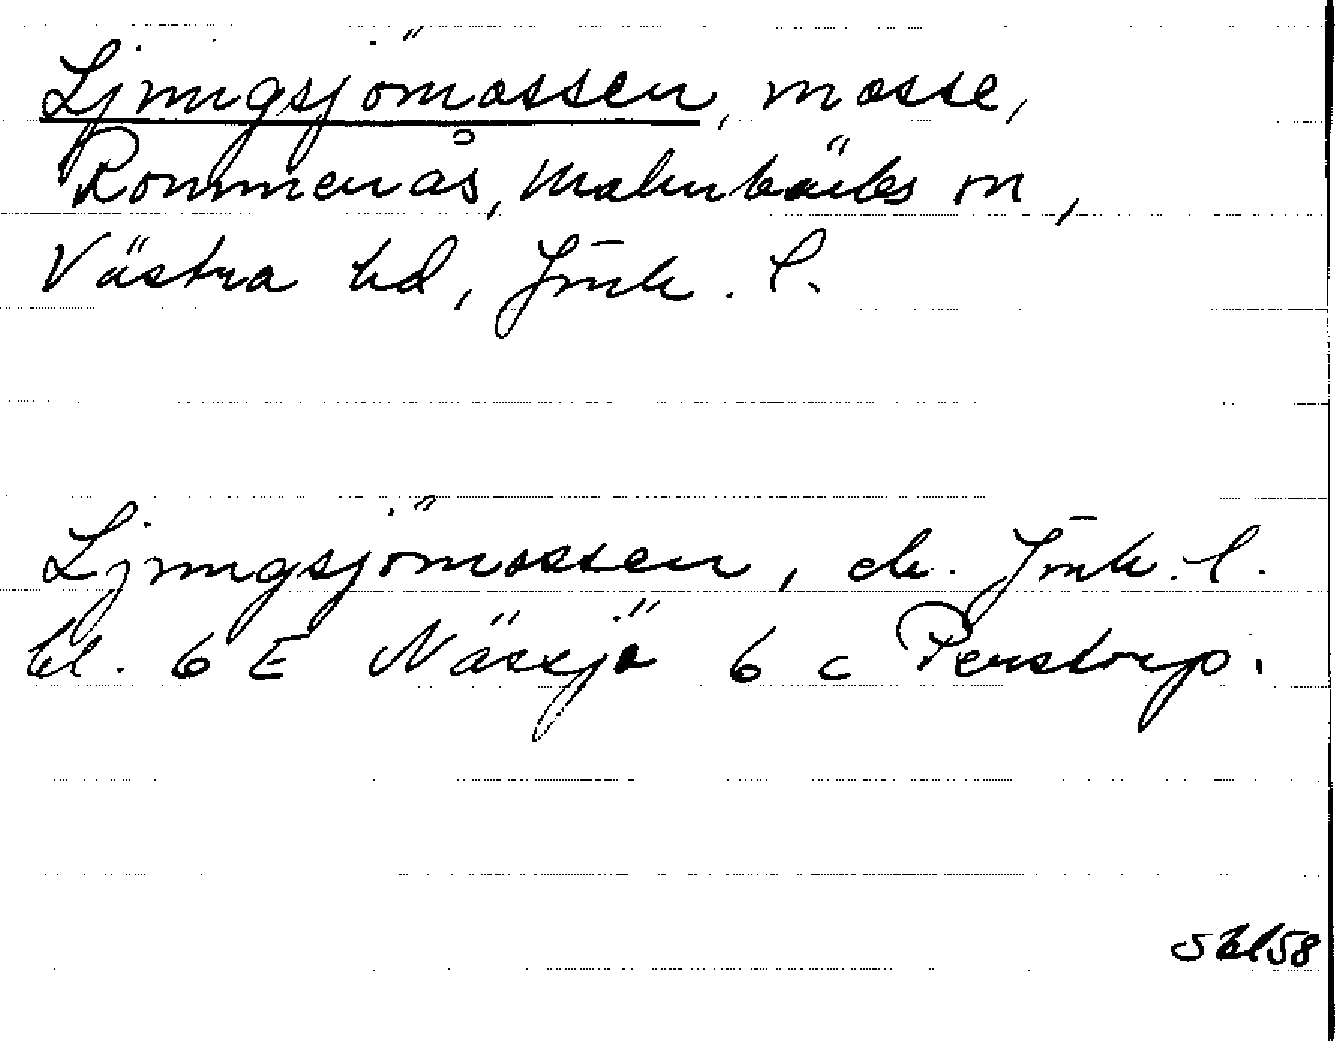 Ljungsjömossen, mosse,
Rommenås, Malmbäcks sn,
Västra hd, Jönk. l.
Ljungsjömossen, ek. Jönk. l.
bl. 6 E Nässjö 6 c Perstorp.
5 bl 58